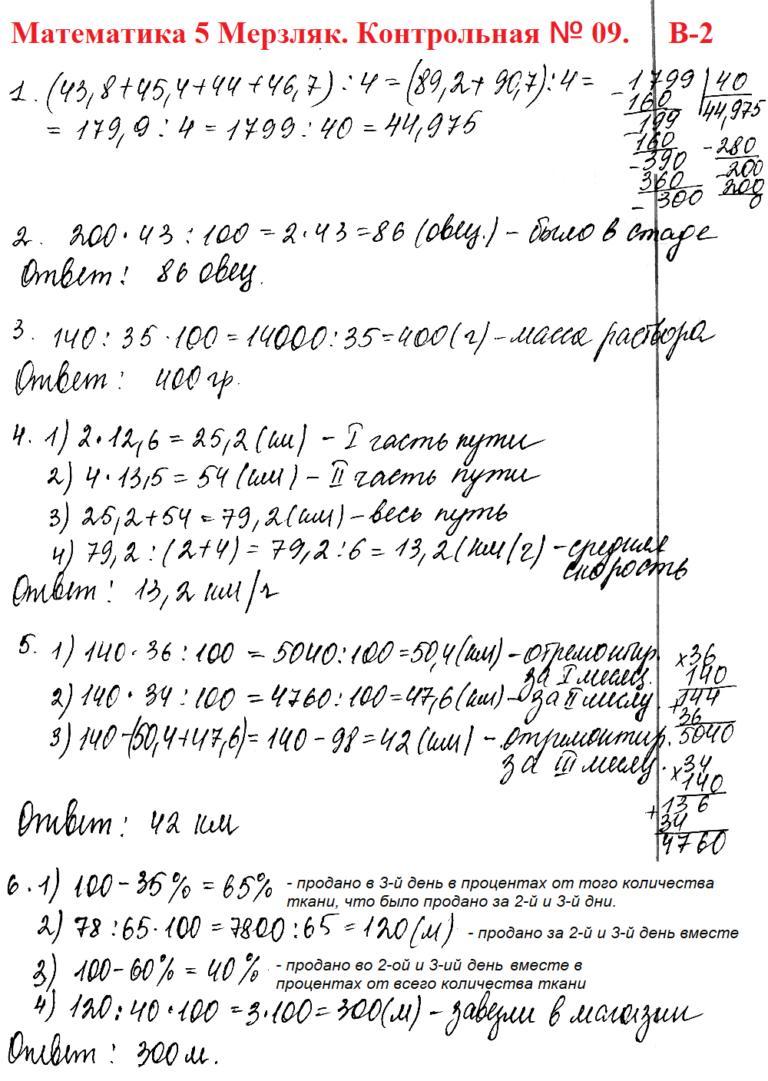 Математика 5 Мерзляк. Контрольная № 09. В-2
1. (43,8+45,4+44+46,7) : 4 = (89,2+90,7) : 4 =
= 179,9 : 4 = 1799 : 40 = 44,975
- 1799 | 40
160 44,975
- 199
160 - 280
- 390 - 200
360 200
- 300 0
2. 200 · 43 : 100 = 2 · 43 = 86 (овец.) - было в стаде
Ответ: 86 овец.
3. 140 : 35 · 100 = 14000 : 35 = 400 (г) - масса раствора
Ответ: 400 гр.
4. 1) 2 · 12,6 = 25,2 (км) - I часть пути
2) 4 · 13,5 = 54 (км) - II часть пути
3) 25,2 + 54 = 79,2 (км) - весь путь
4) 79,2 : (2+4) = 79,2 : 6 = 13,2 (км/ч) - средняя
скорость
Ответ: 13,2 км/ч
5. 1) 140 · 36 : 100 = 5040 : 100 = 50,4 (км) - отремонтир.
за I месяц.
2) 140 · 34 : 100 = 4760 : 100 = 47,6 (км) - за II месяц.
3) 140 - (50,4 + 47,6) = 140 - 98 = 42 (км) - отремонтир.
за III месяц.
× 36
140
+ 144
36
5040
× 34
140
+ 136
34
4760
Ответ: 42 км
6. 1) 100 - 35% = 65% - продано в 3-й день в процентах от того количества
ткани, что было продано за 2-й и 3-й дни.
2) 78 : 65 · 100 = 7800 : 65 = 120 (м) - продано за 2-й и 3-й день вместе
3) 100 - 60% = 40% - продано во 2-ой и 3-ий день вместе в
процентах от всего количества ткани
4) 120 : 40 · 100 = 3 · 100 = 300 (м) - завезли в магазин
Ответ: 300 м.